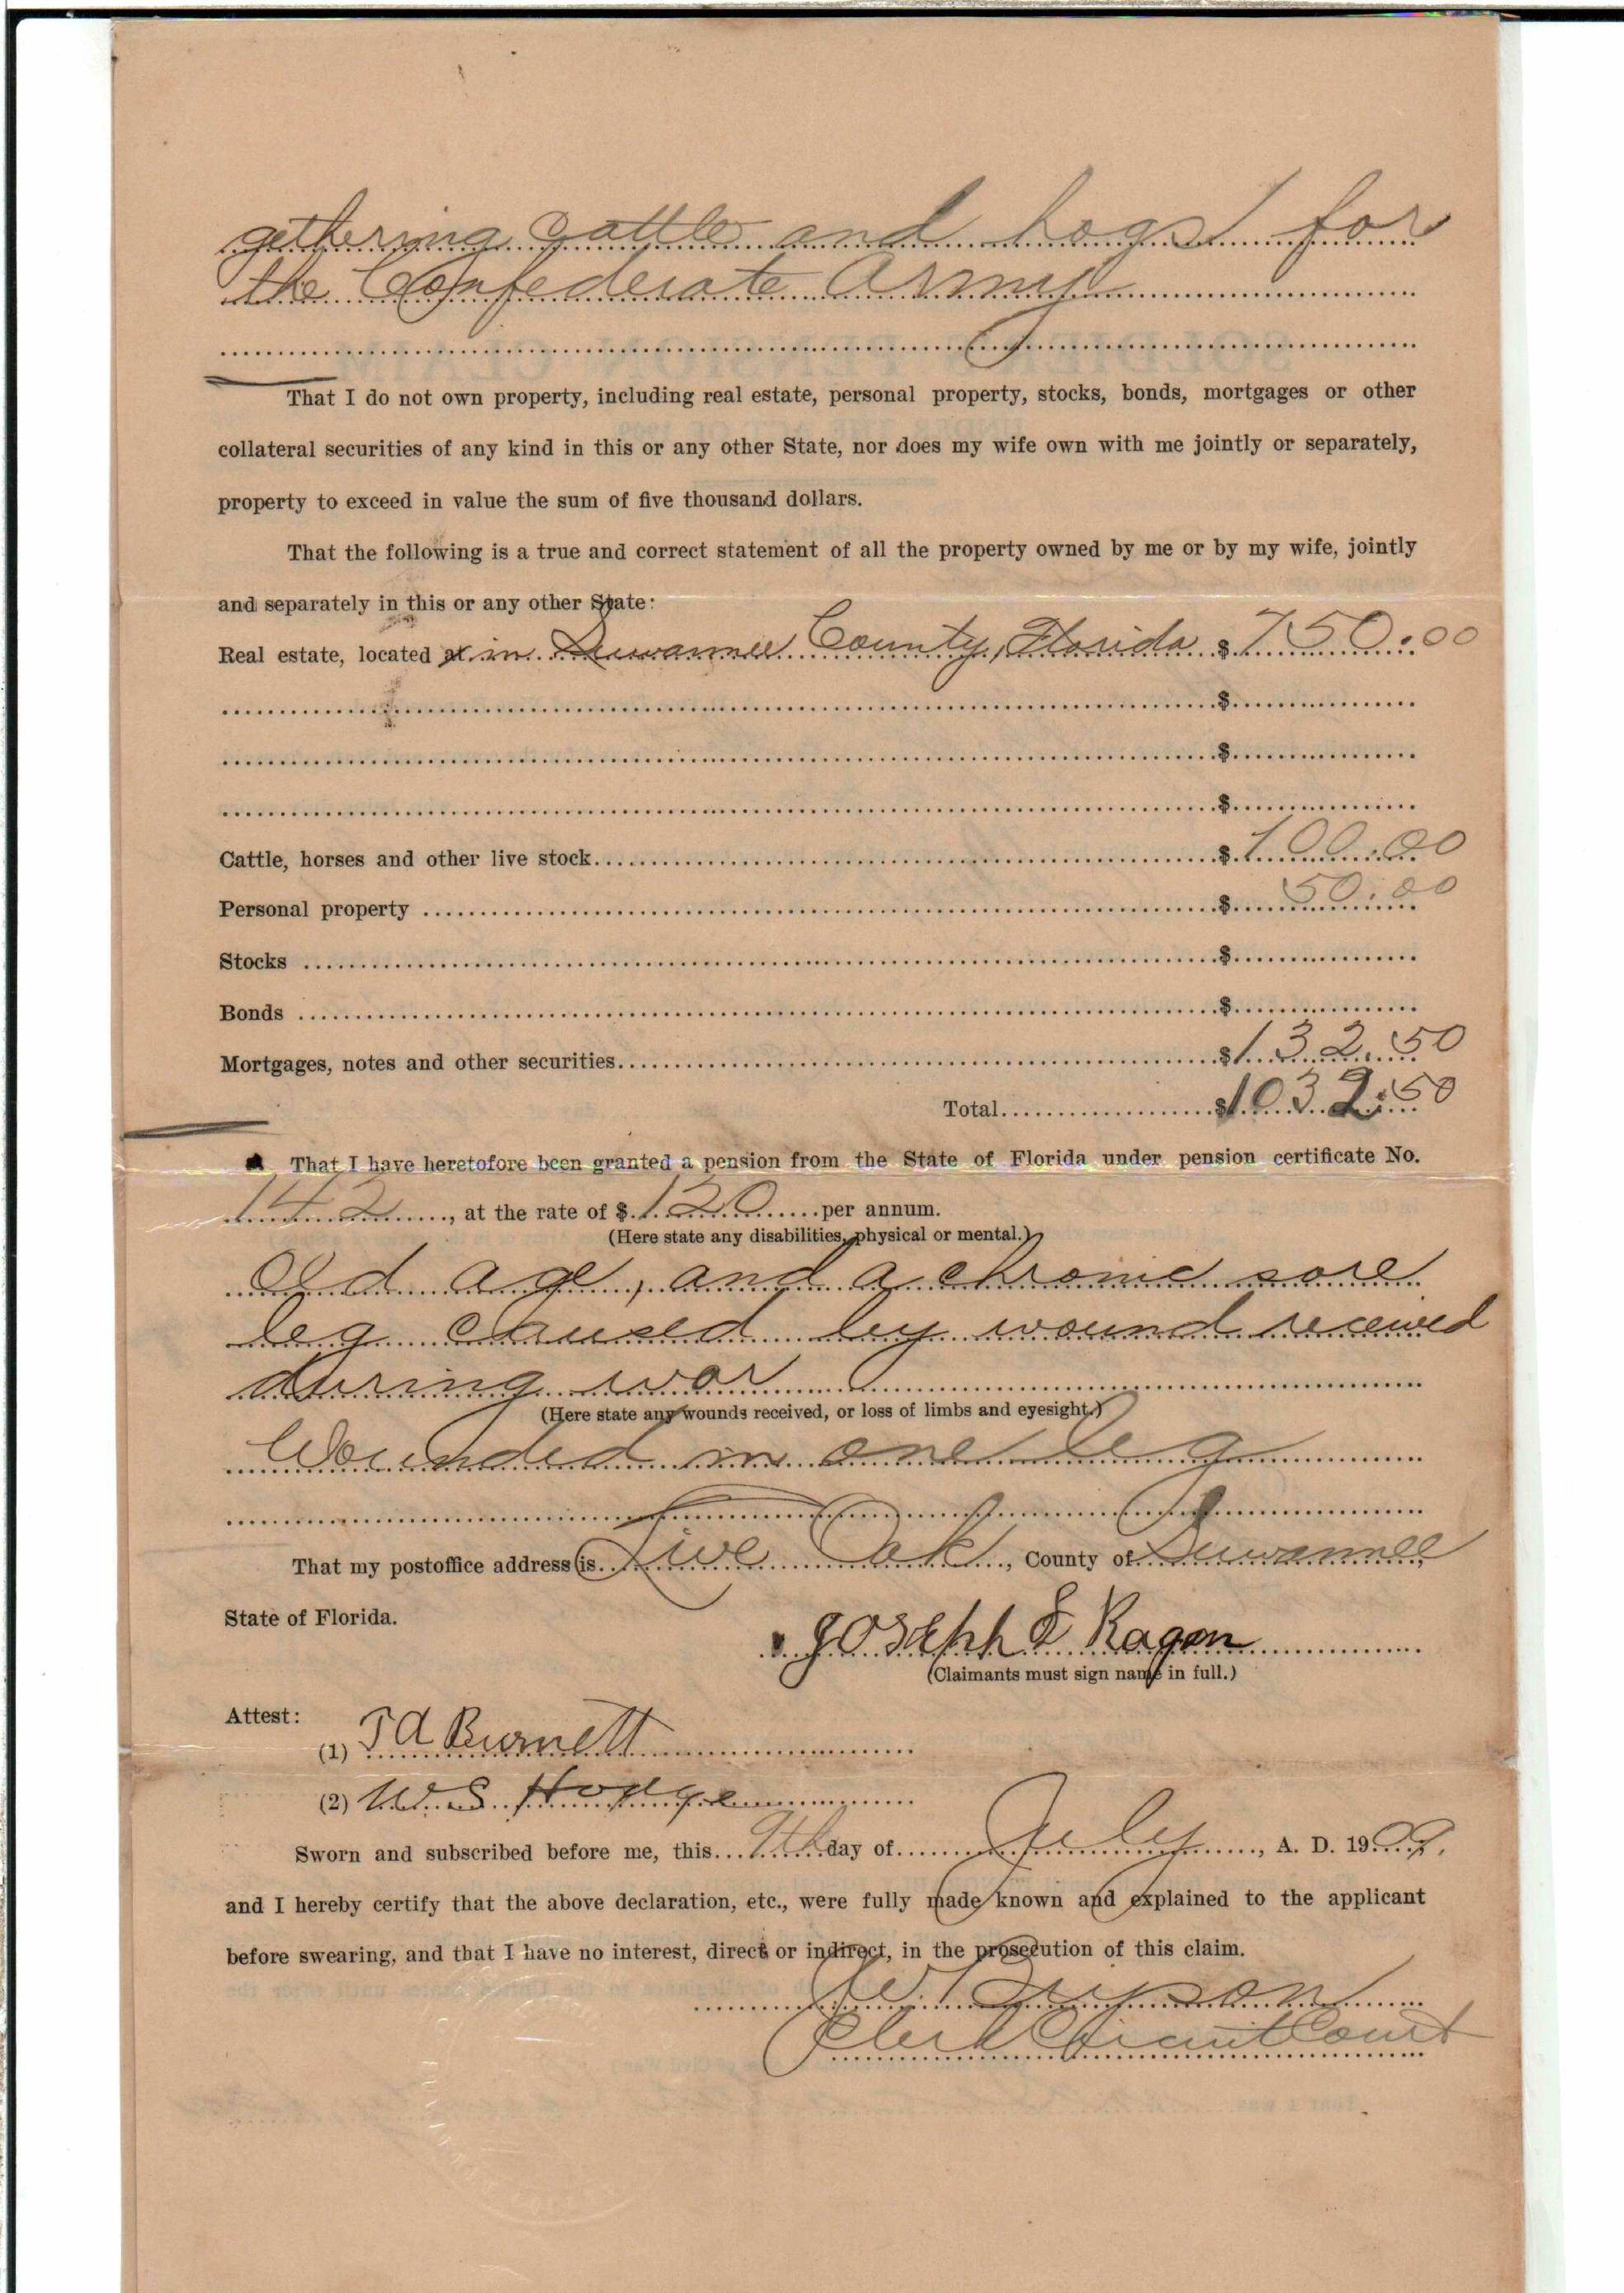 gethering cattle and hogs for
the Confederate Army
That I do not own property, including real estate, personal property, stocks, bonds, mortgages or other
collateral securities of any kind in this or any other State, nor does my wife own with me jointly or separately,
property to exceed in value the sum of five thousand dollars.
That the following is a true and correct statement of all the property owned by me or by my wife, jointly
and separately in this or any other State:
Real estate, located at in Suwannee County, Florida $ 750.00
$
$
$
Cattle, horses and other live stock $ 100.00
Personal property $ 50.00
Stocks $
Bonds $
Mortgages, notes and other securities $ 132.50
Total $1032.50
That I have heretofore been granted a pension from the State of Florida under pension certificate No.
142, at the rate of $ 120 per annum.
(Here state any disabilities, physical or mental.)
Old age, and a chronic sore
leg caused by wound received
during war
(Here state any wounds received, or loss of limbs and eyesight.)
Wounded in one leg
That my postoffice address is Live Oak, County of Suwannee,
State of Florida.
Joseph E Ragan
(Claimants must sign name in full.)
Attest:
(1) T A Burnett
(2) W. S. Hodge
Sworn and subscribed before me, this 9th day of July, A. D. 1909.
and I hereby certify that the above declaration, etc., were fully made known and explained to the applicant
before swearing, and that I have no interest, direct or indirect, in the prosecution of this claim.
Bryson
Clerk Circuit Court